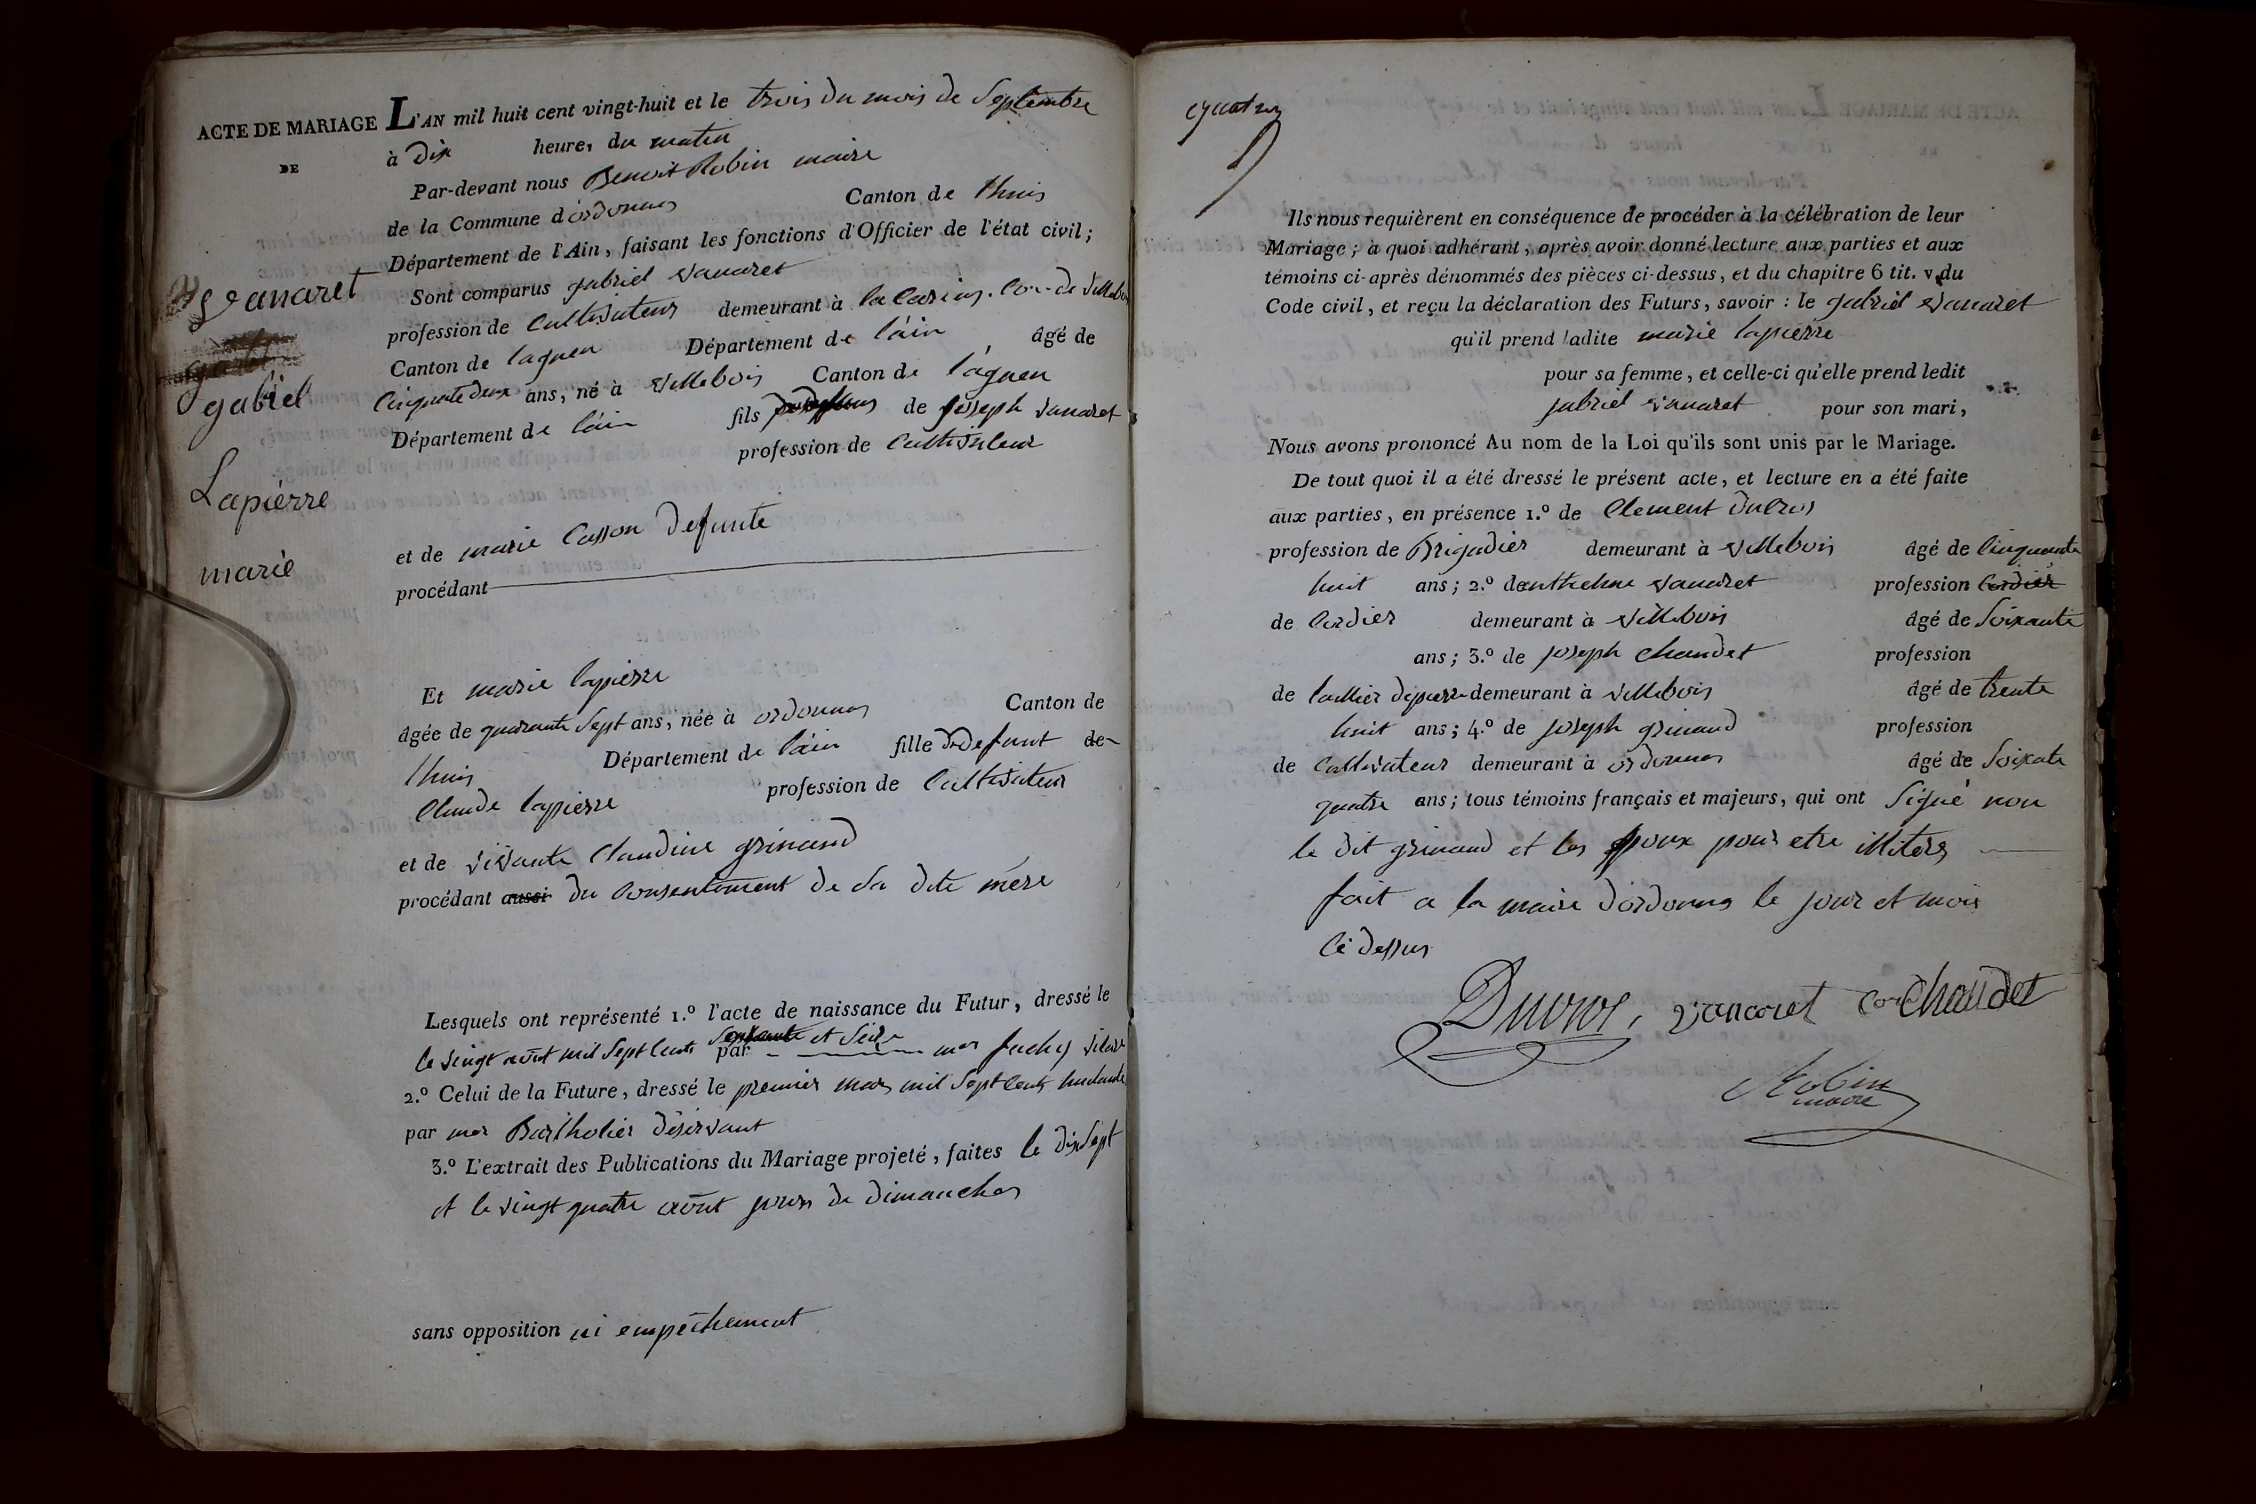 ACTE DE MARIAGE
DE
Vanaret
gabriel
Lapierre
marie
L'AN mil huit cent vingt-huit et le trois du mois de Septembre
à dix heures du matin
Par-devant nous Benoit Robin maire
de la Commune d'ordonnas Canton de lhuis
Département de l'Ain, faisant les fonctions d'Officier de l'état civil;
Sont comparus gabriel vanaret
profession de Cultivateur demeurant à de Villebois
Canton de lagneu Département de l'ain âgé de
Cinquante deux ans, né à Villebois Canton de lagneu
Département de l'ain fils de joseph vanaret
profession de Cultivateur
et de marie Casson defunte
procédant
Et marie lapierre
âgée de quarante Sept ans, née à ordonnas Canton de
lhuis Département de l'ain fille de defunt de
Claude lapierre profession de Cultivateur
et de vivante Claudine grinand
procédant aussi du Consentement de sa dite mère
Lesquels ont représenté 1.° l'acte de naissance du Futur, dressé le
le vingt août mil Sept Cents Soixante et Seize par
2.° Celui de la Future, dressé le premier mars mil Sept Cents
par mer Bartholier désérvant
3.° L'extrait des Publications du Mariage projeté, faites le dix Sept
et le vingt quatre août jours de dimanches
sans opposition ni empéchement
quatre
Ils nous requièrent en conséquence de procéder à la célébration de leur
Mariage; à quoi adhérant, après avoir donné lecture aux parties et aux
témoins ci-après dénommés des pièces ci-dessus, et du chapitre 6 tit. v du
Code civil, et reçu la déclaration des Futurs, savoir: le gabriel vanaret
qu'il prend ladite marie lapierre
pour sa femme, et celle-ci qu'elle prend ledit
gabriel vanaret pour son mari,
Nous avons prononcé Au nom de la Loi qu'ils sont unis par le Mariage.
De tout quoi il a été dressé le présent acte, et lecture en a été faite
aux parties, en présence 1.° de Clement Ducros
profession de Brigadier demeurant à Villebois âgé de Cinquante
huit ans; 2.° d'anthelme vanaret profession Cordier
de Cordier demeurant à Villebois âgé de Soixante
ans; 3.° de joseph Chaudet profession
de taillier de pierre demeurant à Villebois âgé de trente
huit ans; 4.° de joseph grinand profession
de Cultivateur demeurant à ordonnas âgé de Soixate
quatre ans; tous témoins français et majeurs, qui ont Signé non
le dit grinand et les Epoux pour etre illiterés
fait a la maire d'ordonnas le jour et mois
Ci dessus
Ducros vanaret Chaudet
Robin
maire